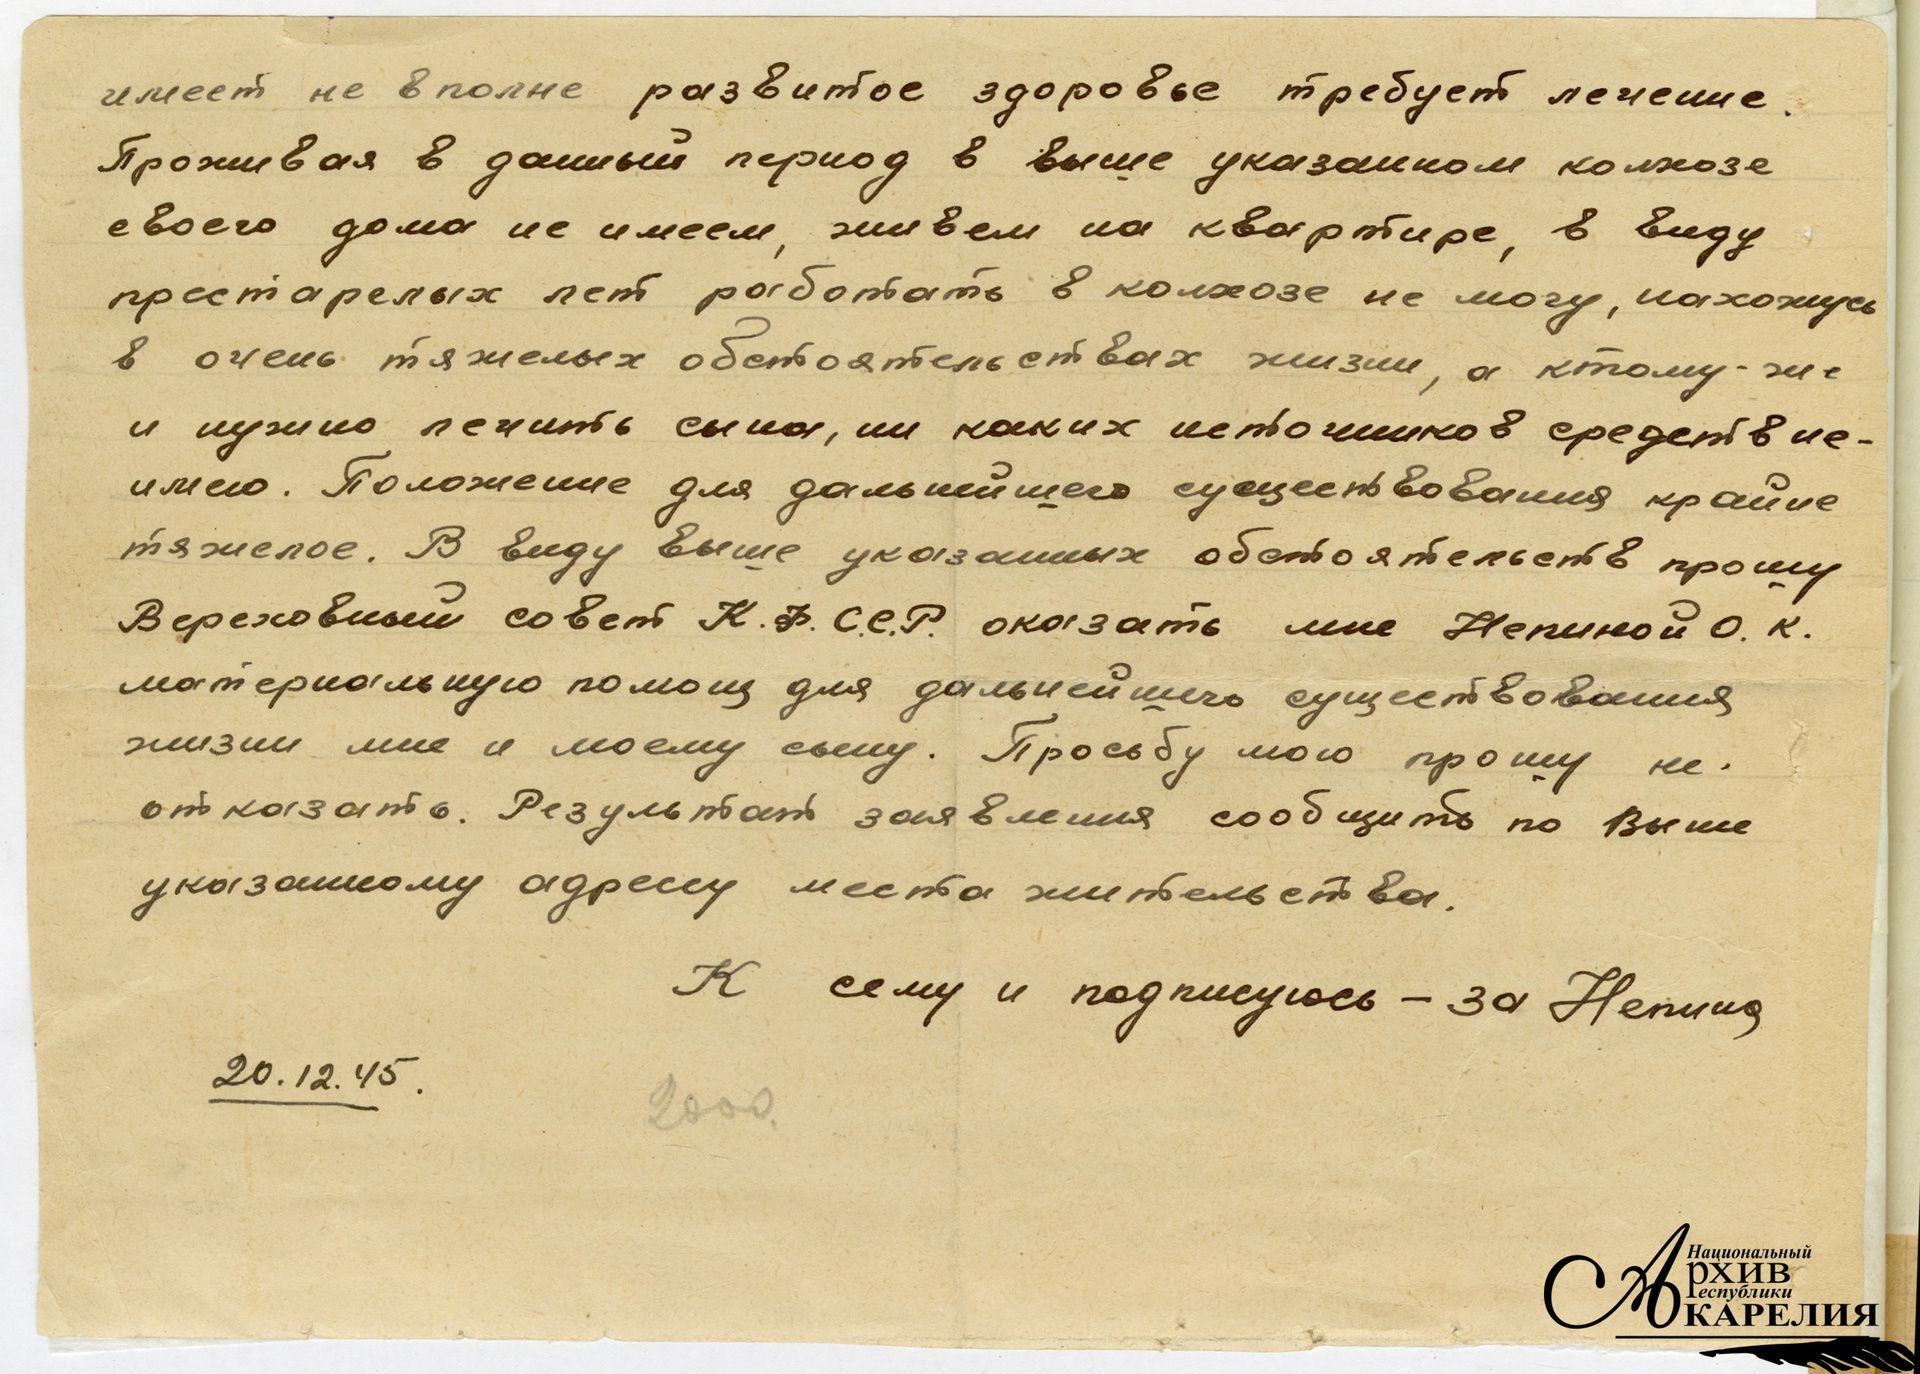 имеет не вполне развитое здоровье требует лечение.
Проживая в данный период в выше указанном колхозе
своего дома не имеем, живем на квартире, в виду
престарелых лет работать в колхозе не могу, нахожусь
в очень тяжелых обстоятельствах жизни, а ктому-же
и нужно лечить сына, ни каких источников средств не-
имею. Положение для дальнейшего существования крайне
тяжелое. В виду выше указанных обстоятельств прошу
Верховный совет К.Ф.С.С.Р. оказать мне Непиной О.К.
материальную помощ для дальнейшего существования
жизни мне и моему сыну. Просьбу мою прошу не-
отказать. Результат заявления сообщить по выше
указанному адресу места жительства.
К сему и подписуюсь – за Непина
20.12.45.
2000.
Национальный
Архив
Республики
Карелия